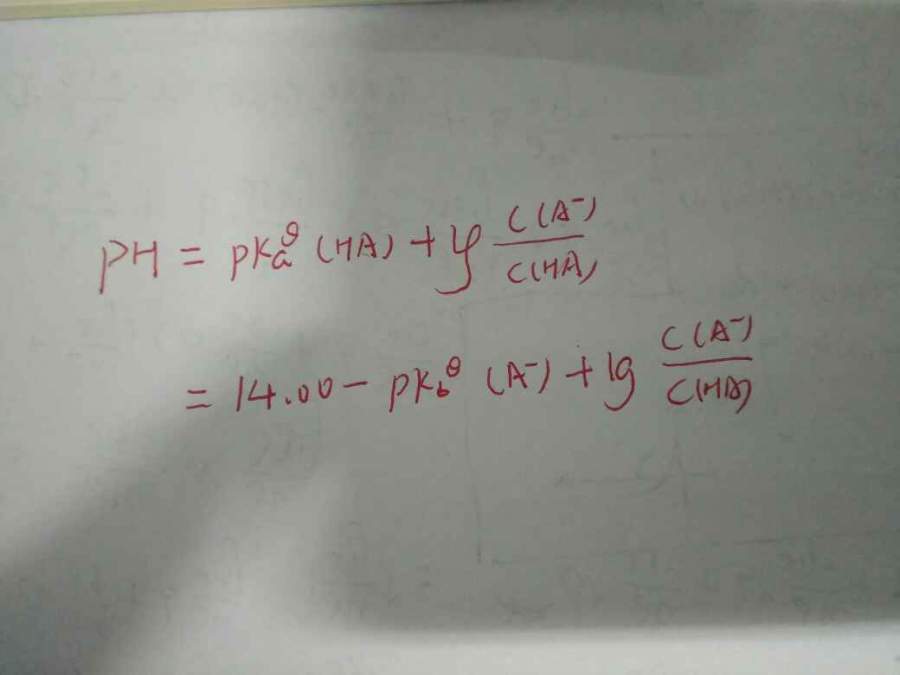 PH = pKa^θ (HA) + lg C(A⁻)/C(HA)
= 14.00 - pKb^θ (A⁻) + lg C(A⁻)/C(HA)